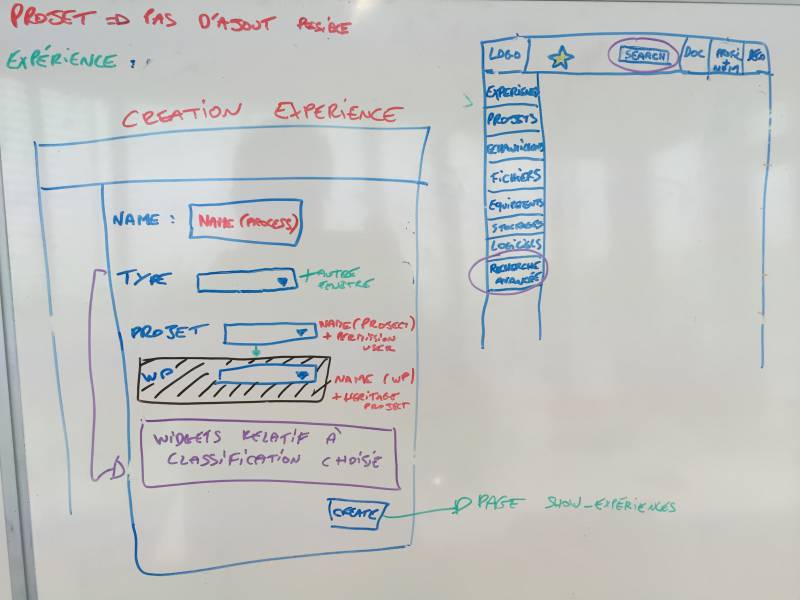 PROJET => PAS D'AJOUT POSSIBLE
EXPÉRIENCE :
CREATION EXPERIENCE
NAME : NAME (PROCESS)
TYPE + AUTRE FENÊTRE
PROJET NAME (PROJECT)
+ PERMISSION
USER
WP NAME (WP)
+ HERITAGE
PROJECT
WIDGETS RELATIF À
CLASSIFICATION CHOISIE
CREATE PAGE SHOW_EXPÉRIENCES
LOGO SEARCH DOC PROFIL
+
NOM DECO
EXPERIENCE
PROJETS
ECHANTILLONS
FICHIERS
EQUIPEMENTS
STOCKAGES
LOGICIELS
RECHERCHE
AVANCÉE